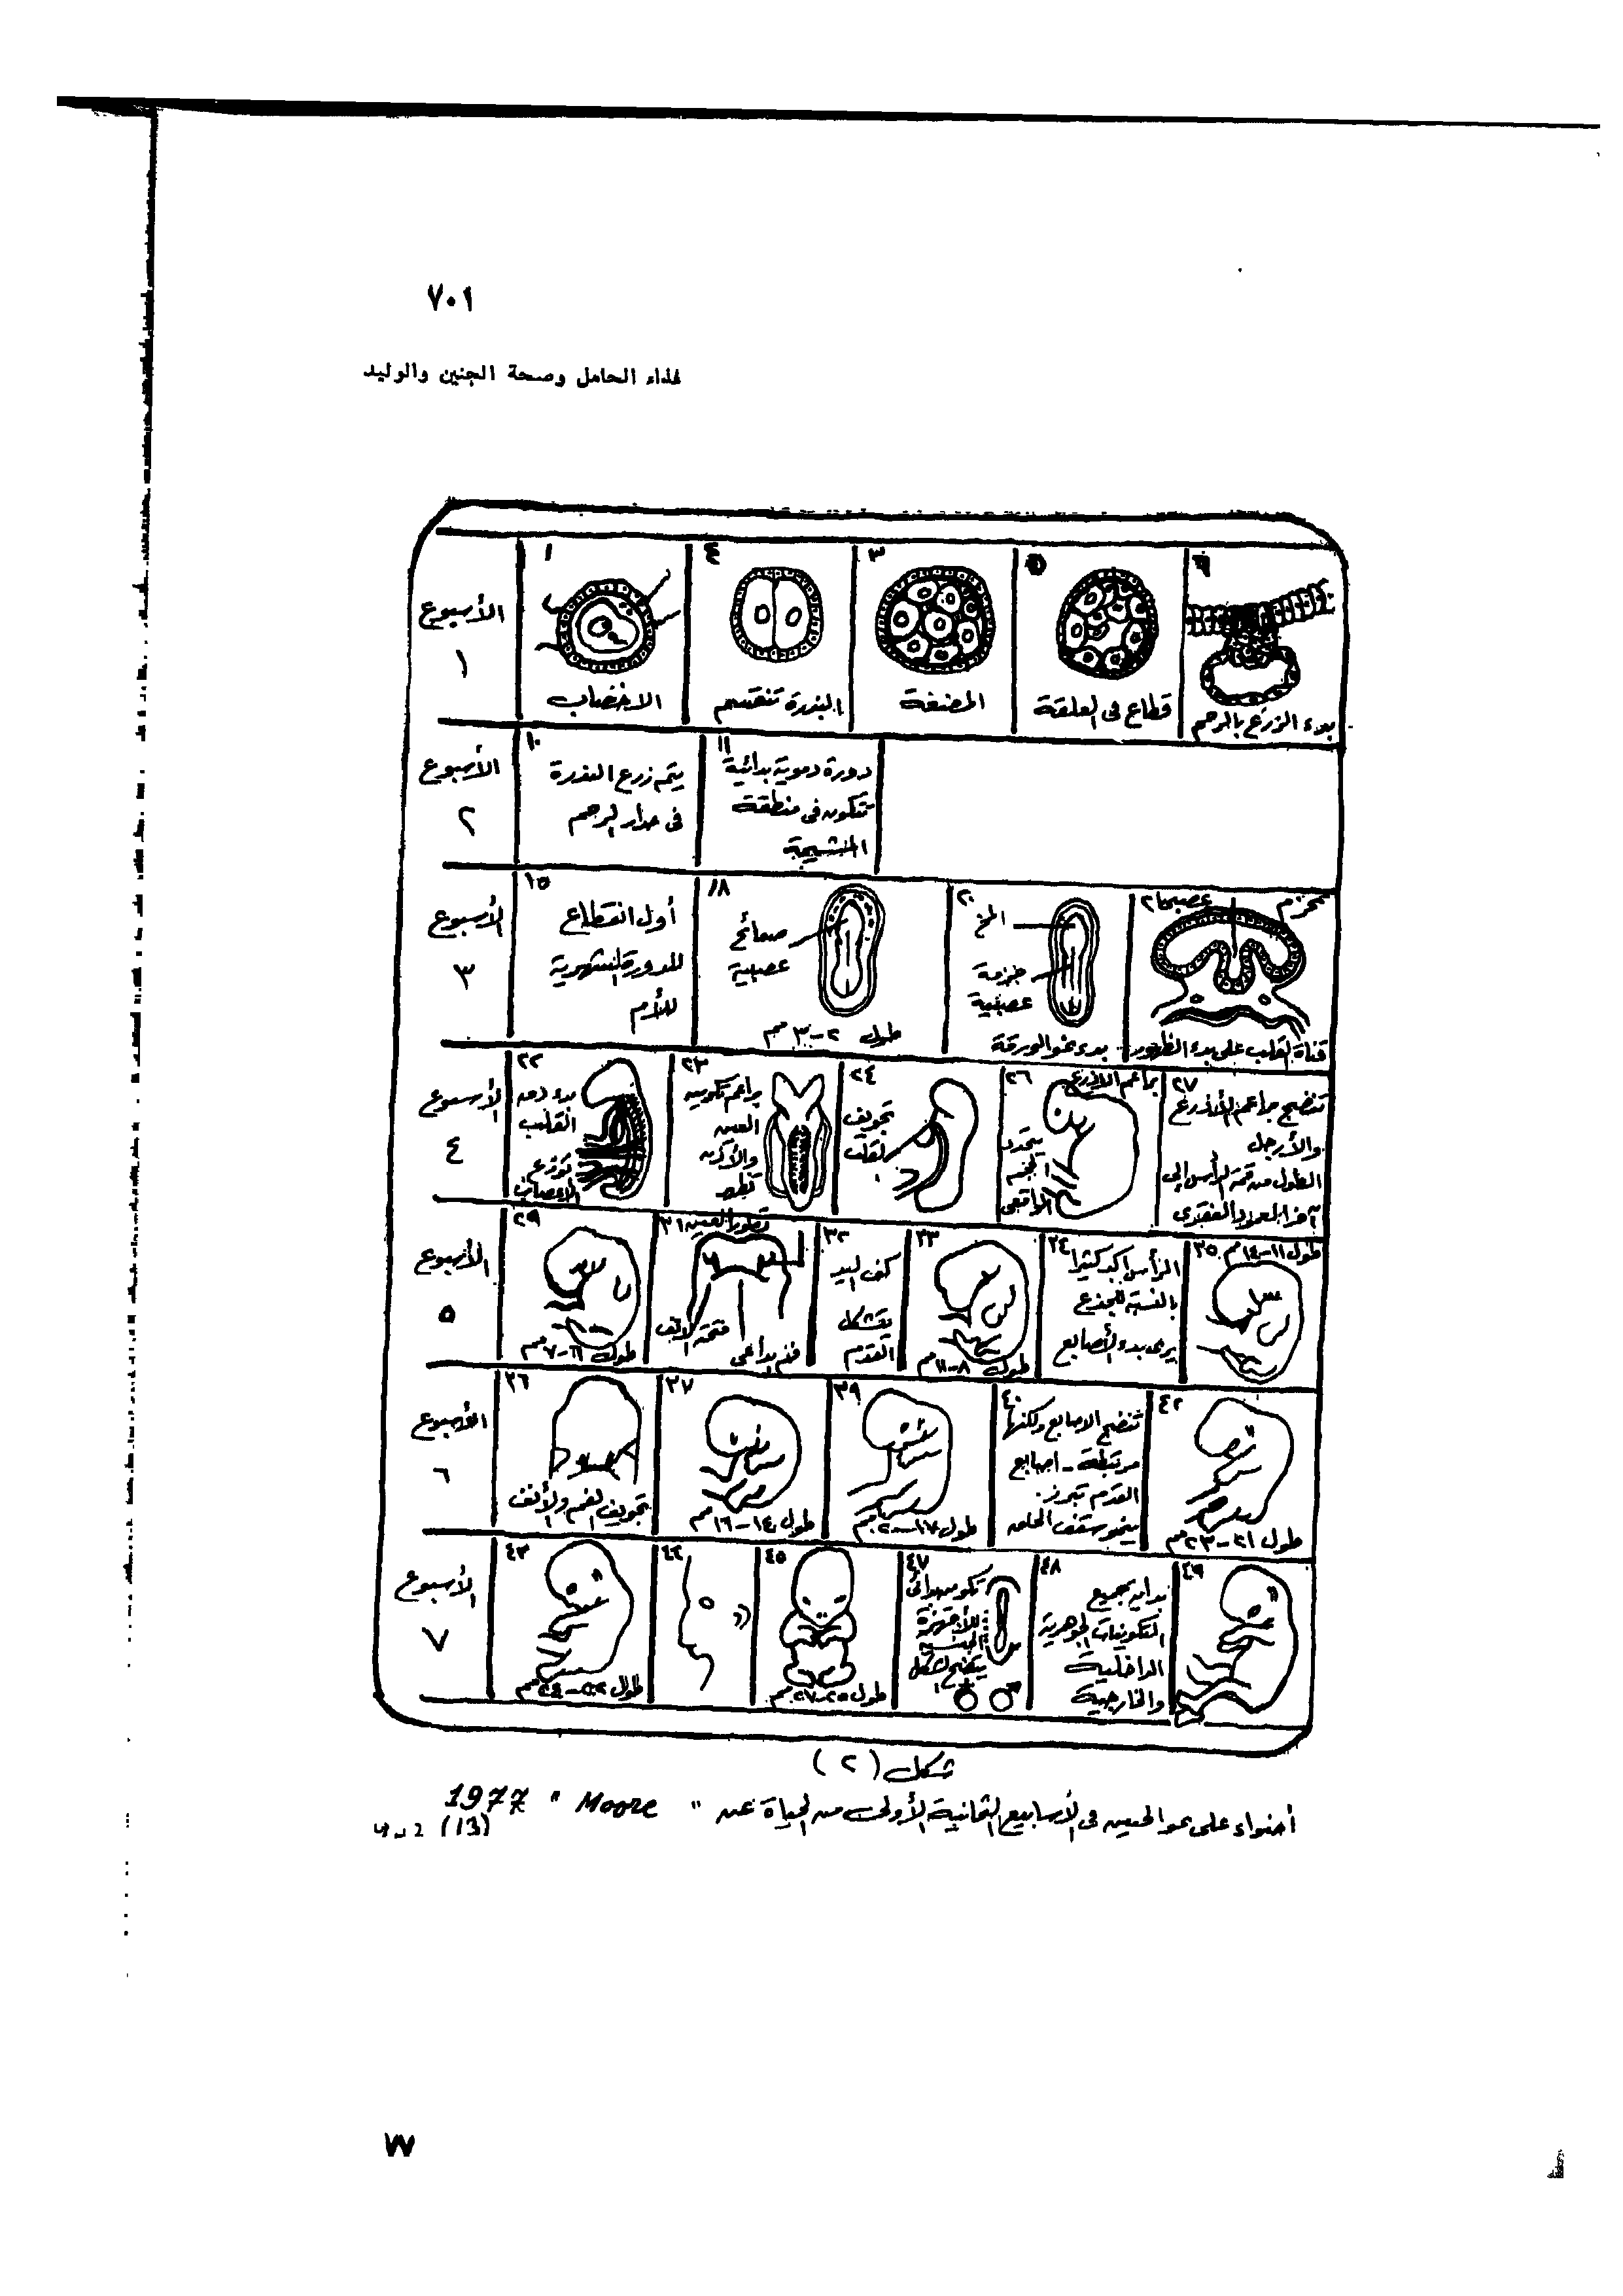 ٧٠١
غذاء الحامل وصحة الجنين والوليد
الأسبوع
١
١
الاخصاب
٤
البذرة تنقسم
٣
المضغة
٥
قطاع فى العلقة
٦
بدء الزرع بالرحم
الأسبوع
٢
١٠
يتم زرع البذرة
فى جدار الرحم
١١
دورة دموية بدائية
تتكون فى منطقة
المشيمة
الأسبوع
٣
١٥
أول انقطاع
للدورة الشهرية
للأم
١٨
صفائح
عصبية
طول ٢-٣ مم
٢٠
المخ
حزمة
عصبية
بدء نمو الورقة
٢١
قناة القلب على بدء الظهور
الأسبوع
٤
٢٢
بدء دق
القلب
توزع
الأعصاب
٢٣
براعم تكوين
العين
والأذن
تظهر
٢٤
تجويف
القلب
٢٦
براعم الاذرع
٢٧
تنضج براعم الأذرع
والأرجل
الطول من قمة الرأس إلى
آخر العمود الفقرى
الأسبوع
٥
٢٩
طول ٦-٧ مم
٣١
تطور العين
فتحة الانف
فم بدائى
٣٢
كف اليد
يتشكل
القدم
٣٣
طول ٨-١١ مم
٣٤
الرأس أكبر كثيرا
بالنسبة للجذع
يرى بدء الأصابع
٣٥
طول ١١-١٤ مم
الأسبوع
٦
٣٦
تجويف الفم والأنف
٣٧
طول ١٤-١٦ مم
٣٩
طول ١٧-٢٠ مم
٤٠
تنضج الاصابع ولكنها
مرتبطة - اصابع
القدم تبرز.
ينمو سقف الحلق
٤٢
طول ٢١-٢٣ مم
الأسبوع
٧
٤٣
طول
مم
٤٤
٤٥
طول ٢٥-٢٧ مم
٤٧
للأجهزة
يتضح الشكل
٤٨
بداية جميع
التكوينات الجوهرية
الداخلية
والخارجية
٤٩
شكل (٢)
أضواء على نمو الجنين فى الأسابيع الثمانية الأولى من الحياة عن " Moore " 1977
(13)
٧٧